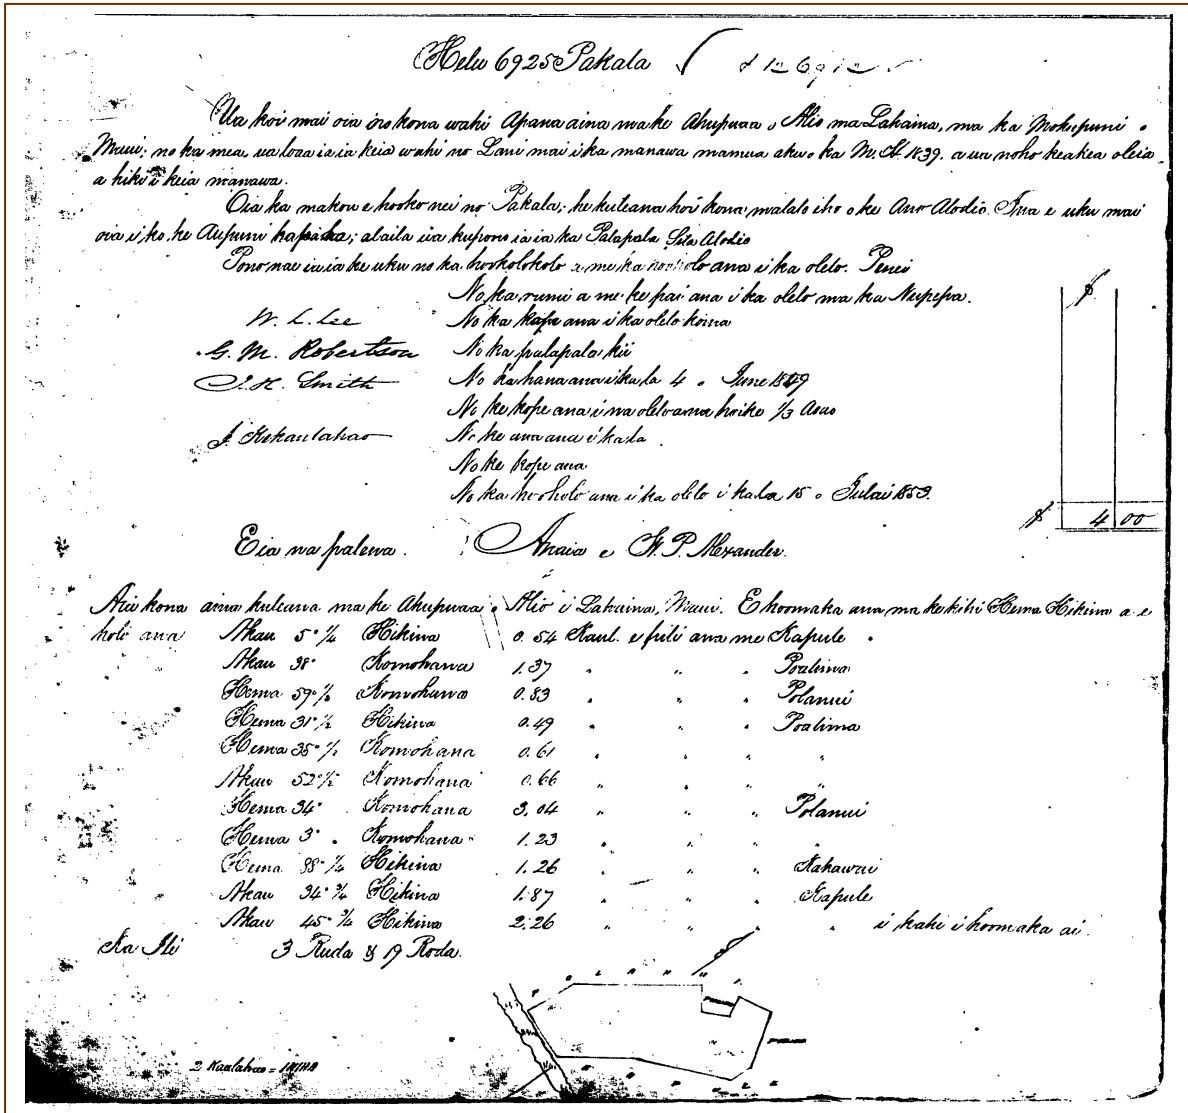 Helu 6925 Pakala
Ua koi mai oia i no kona wahi Apana aina ma ke Ahupuaa o Alio ma Lahaina, ma ka Mokupuni o
Maui; no ka mea, ua loaa ia ia keia wahi no Laui mai i ka manawa mamua aku o ka M.H. 1839. a ua noho keakea ole ia
a hiki i keia manawa.
Oia ka makou e hooko nei no Pakala; he kuleana hoi kona malalo iho o ke Ano Alodio. Ina e uku mai
oia i ko ke Aupuni; alaila ua kupono ia ia ka Palapala Sila Alodio
Pono nae ia ia ke uku no ka hookolokolo a me ka hooholo ana i ka olelo. Penei
No ka rumi a me ke pai ana i ka olelo ma ka Nupepa. $
W. L. Lee No ka kope ana i ka olelo koina
G. M. Robertson No ka palapala kii
J. H. Smith No ka hana ana i ka la 4 o June 1849
No ke kope ana i na olelo a na hoike 1/3 Aoao
J. Kekaulahao No ke ana ana i ka la
No ke kope ana
No ka hooholo ana i ka olelo i ka la 15 o Julai 1853.
$ 4 00
Eia na palena. Anaia e W. P. Alexander.
Aia kona aina kuleana ma ke Ahupuaa o Alio i Lahaina, Maui. E hoomaka ana ma ke kihi Hema Hikina a e
holo ana Akau 5° 1/4 Hikina 0.54 Kaul. e pili ana me Kapule
Akau 38° Komohana 1.37 " " " Poalima
Hema 59° 1/2 Komohana 0.83 " " " Polanui
Hema 31° 1/2 Hikina 0.49 " " " Poalima
Hema 35° 1/2 Komohana 0.61 " " " "
Akau 52° 1/2 Komohana 0.66 " " "
Hema 34° Komohana 3.04 " " " Polanui
Hema 3° Komohana 1.23 " " " "
Hema 88° 1/4 Hikina 1.26 " " " Kahawai
Akau 34° 3/4 Hikina 1.87 " " " Kapule
Akau 45° 3/4 Hikina 2.26 " " " " i kahi i hoomaka ai.
Ka Ili 3 Ruda & 19 Roda.